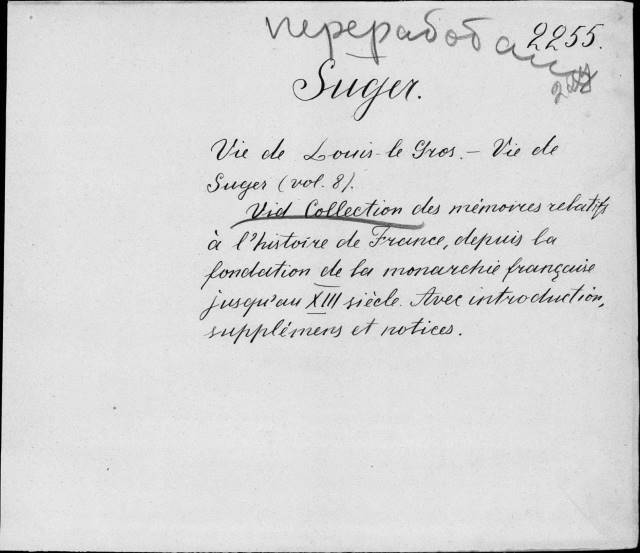 переработано
2255.
Suger.
Vie de Louis-le Gros. – Vie de
Suger (vol. 8).
Vid Collection des mémoires relatifs
à l'histoire de France, depuis la
fondation de la monarchie française
jusqu'au XIII siècle. Avec introduction,
supplémens et notices.